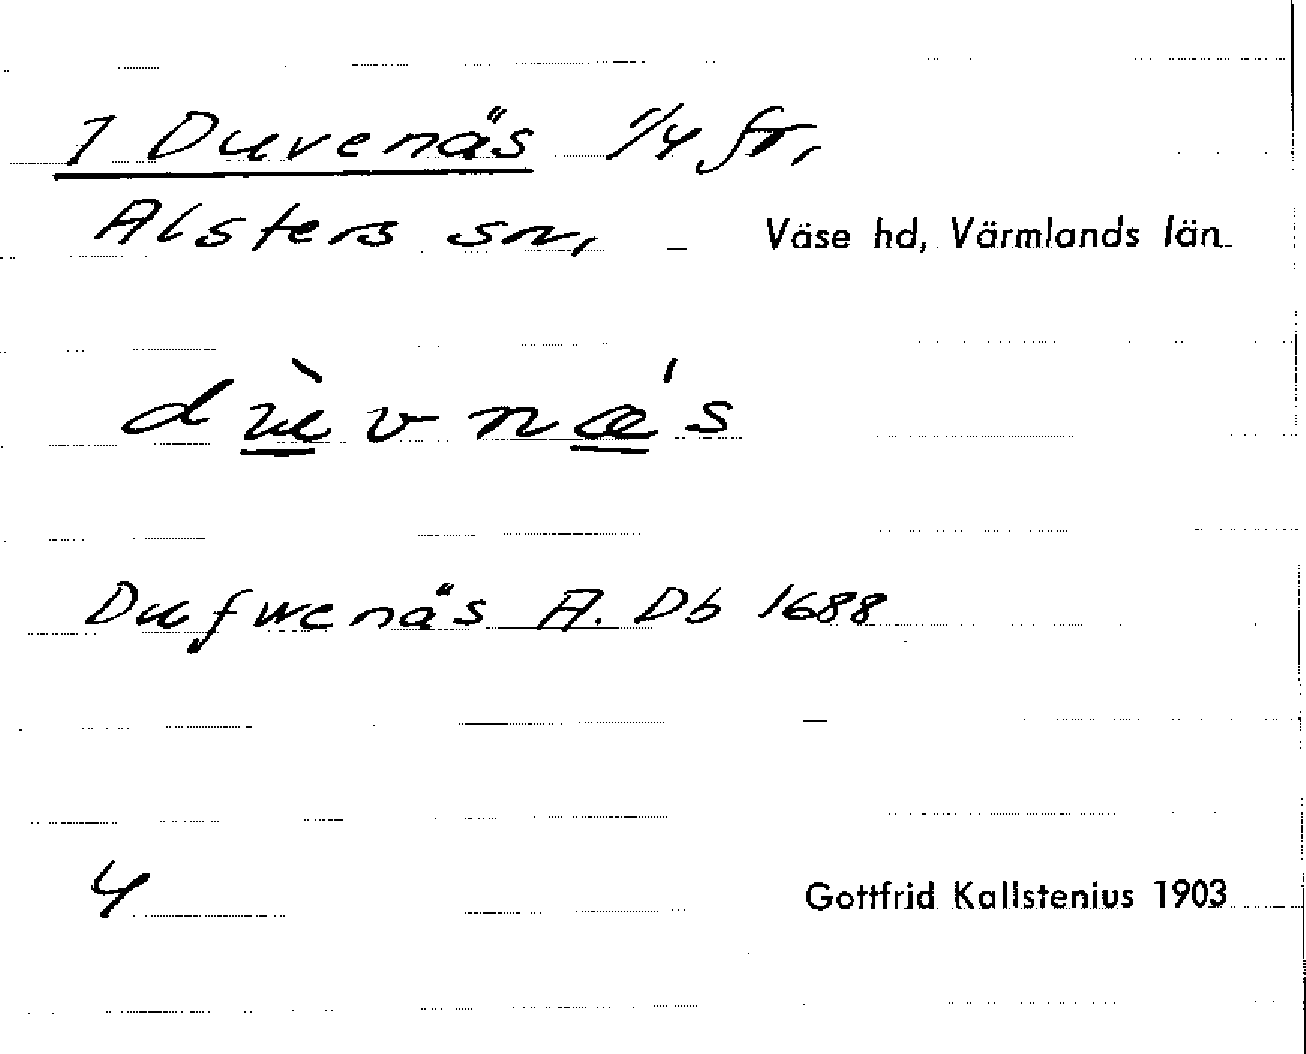 1 Duvenäs 1/4 fr,
Alsters sn, Väse hd, Värmlands län
dùvnæ's
Dufwenäs A. Db 1688
4 Gottfrid Kallstenius 1903